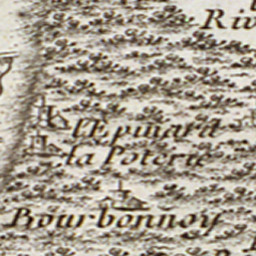 Riv
l'Epinard
la Poterie
Bourbonnoy